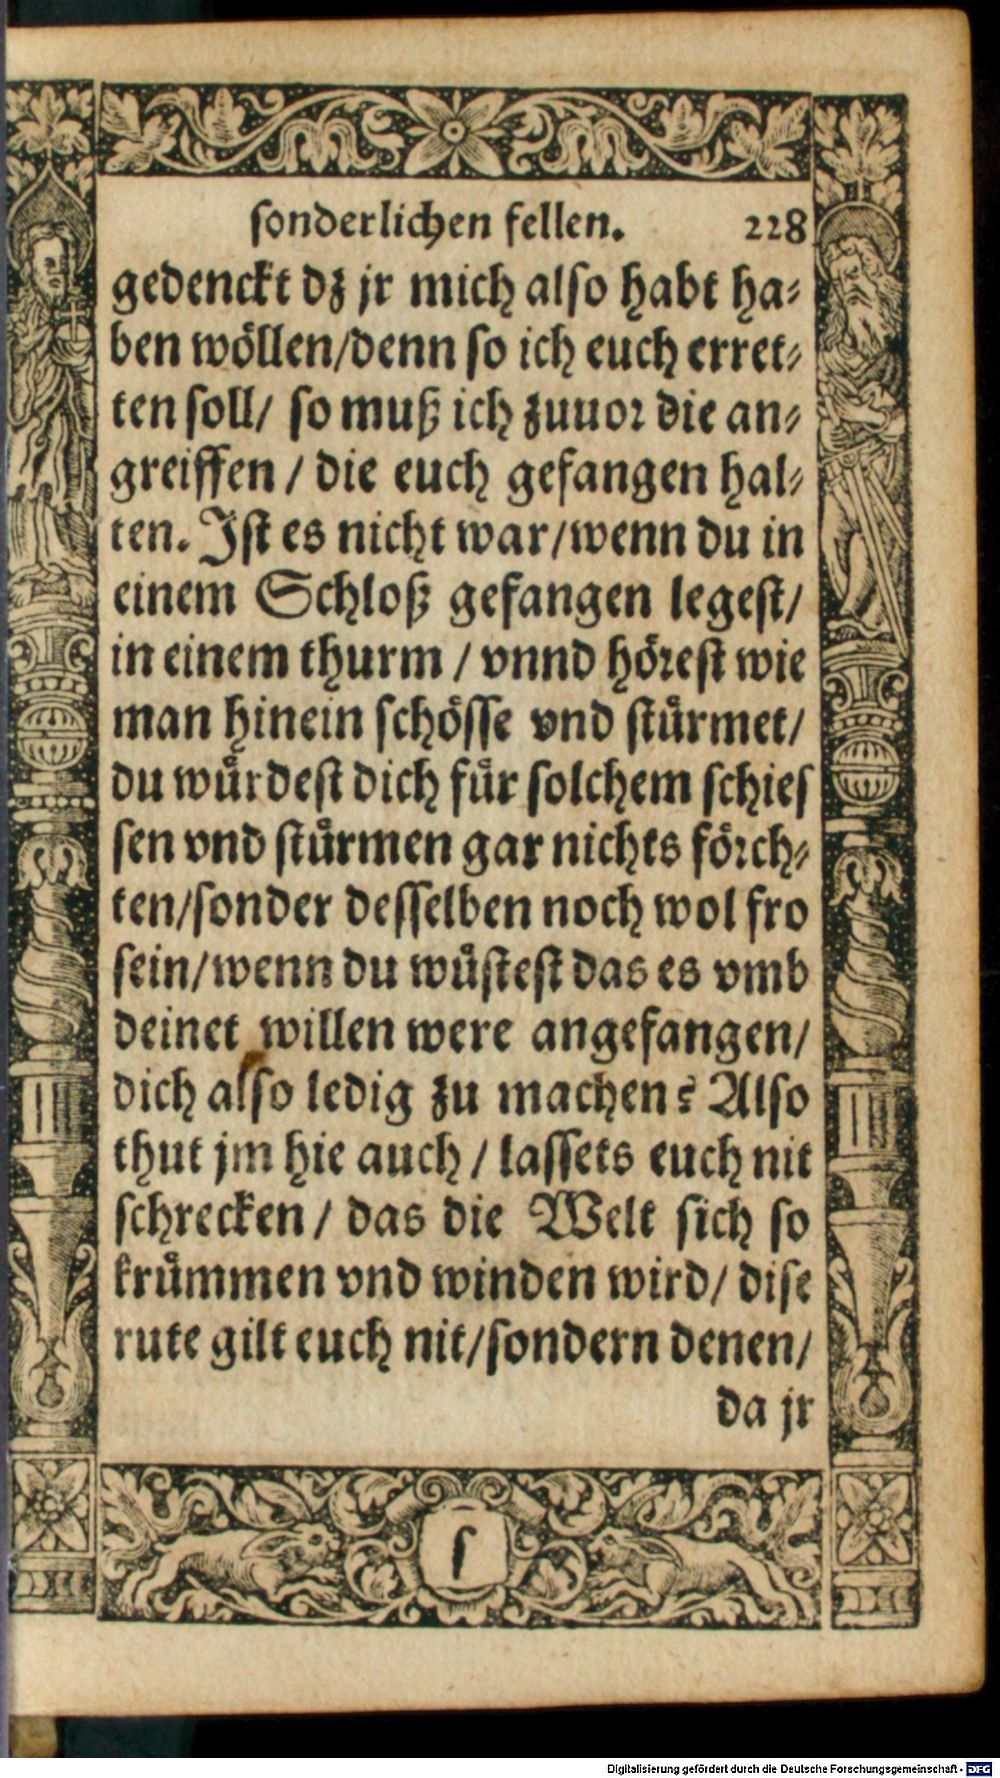 sonderlichen fellen. 228
gedenckt dz jr mich also habt ha-
ben wöllen/denn so ich euch erret-
ten soll/ so muß ich zuuor die an-
greiffen / die euch gefangen hal-
ten. Ist es nicht war/wenn du in
einem Schloß gefangen legest/
in einem thurm / vnnd hörest wie
man hinein schösse vnd stürmet/
du würdest dich für solchem schies
sen vnd stürmen gar nichts förch-
ten/sonder desselben noch wol fro
sein/wenn du wüstest das es vmb
deinet willen were angefangen/
dich also ledig zu machen? Also
thut jm hie auch / lassets euch nit
schrecken / das die Welt sich so
krümmen vnd winden wird/ dise
rute gilt euch nit/sondern denen/
da jr
f
Digitalisierung gefördert durch die Deutsche Forschungsgemeinschaft - DFG